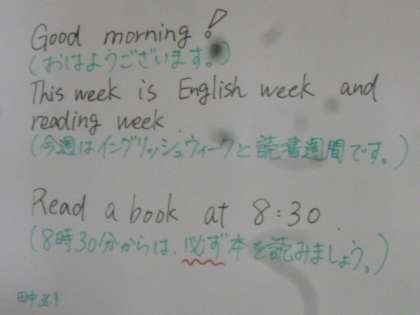 Good morning!
(おはようございます。)
This week is English week and
reading week.
(今週はイングリッシュウィークと読書週間です。)
Read a book at 8:30.
(8時30分からは、必ず本を読みましょう。)
田中